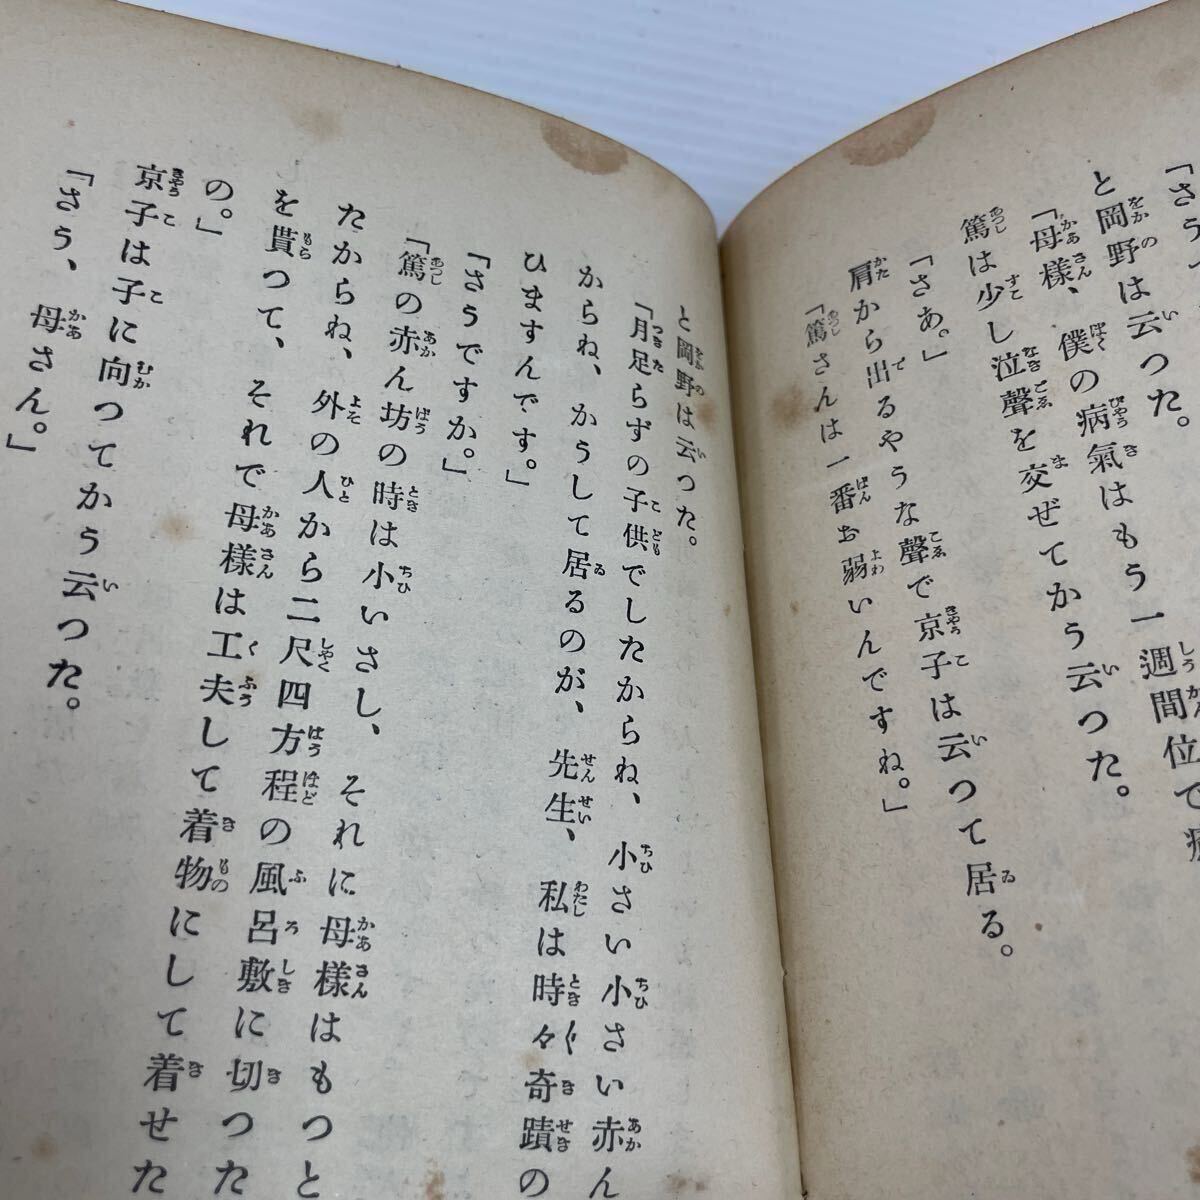 「さう
と岡野は云つた。
「母様、僕の病氣はもう一週間位で
篤は少し泣聲を交ぜてかう云つた。
「さあ。」
肩から出るやうな聲で京子は云つて居る。
「篤さんは一番お弱いんですね。」
と岡野は云つた。
「月足らずの子供でしたからね、小さい小さい赤ん
からね、かうして居るのが、先生、私は時々奇蹟の
ひますんです。」
「さうですか。」
「篤の赤ん坊の時は小いさし、それに母様はもつと
たからね、外の人から二尺四方程の風呂敷に切つた
を貰つて、それで母様は工夫して着物にして着せた
の。」
京子は子に向つてかう云つた。
「さう、母さん。」